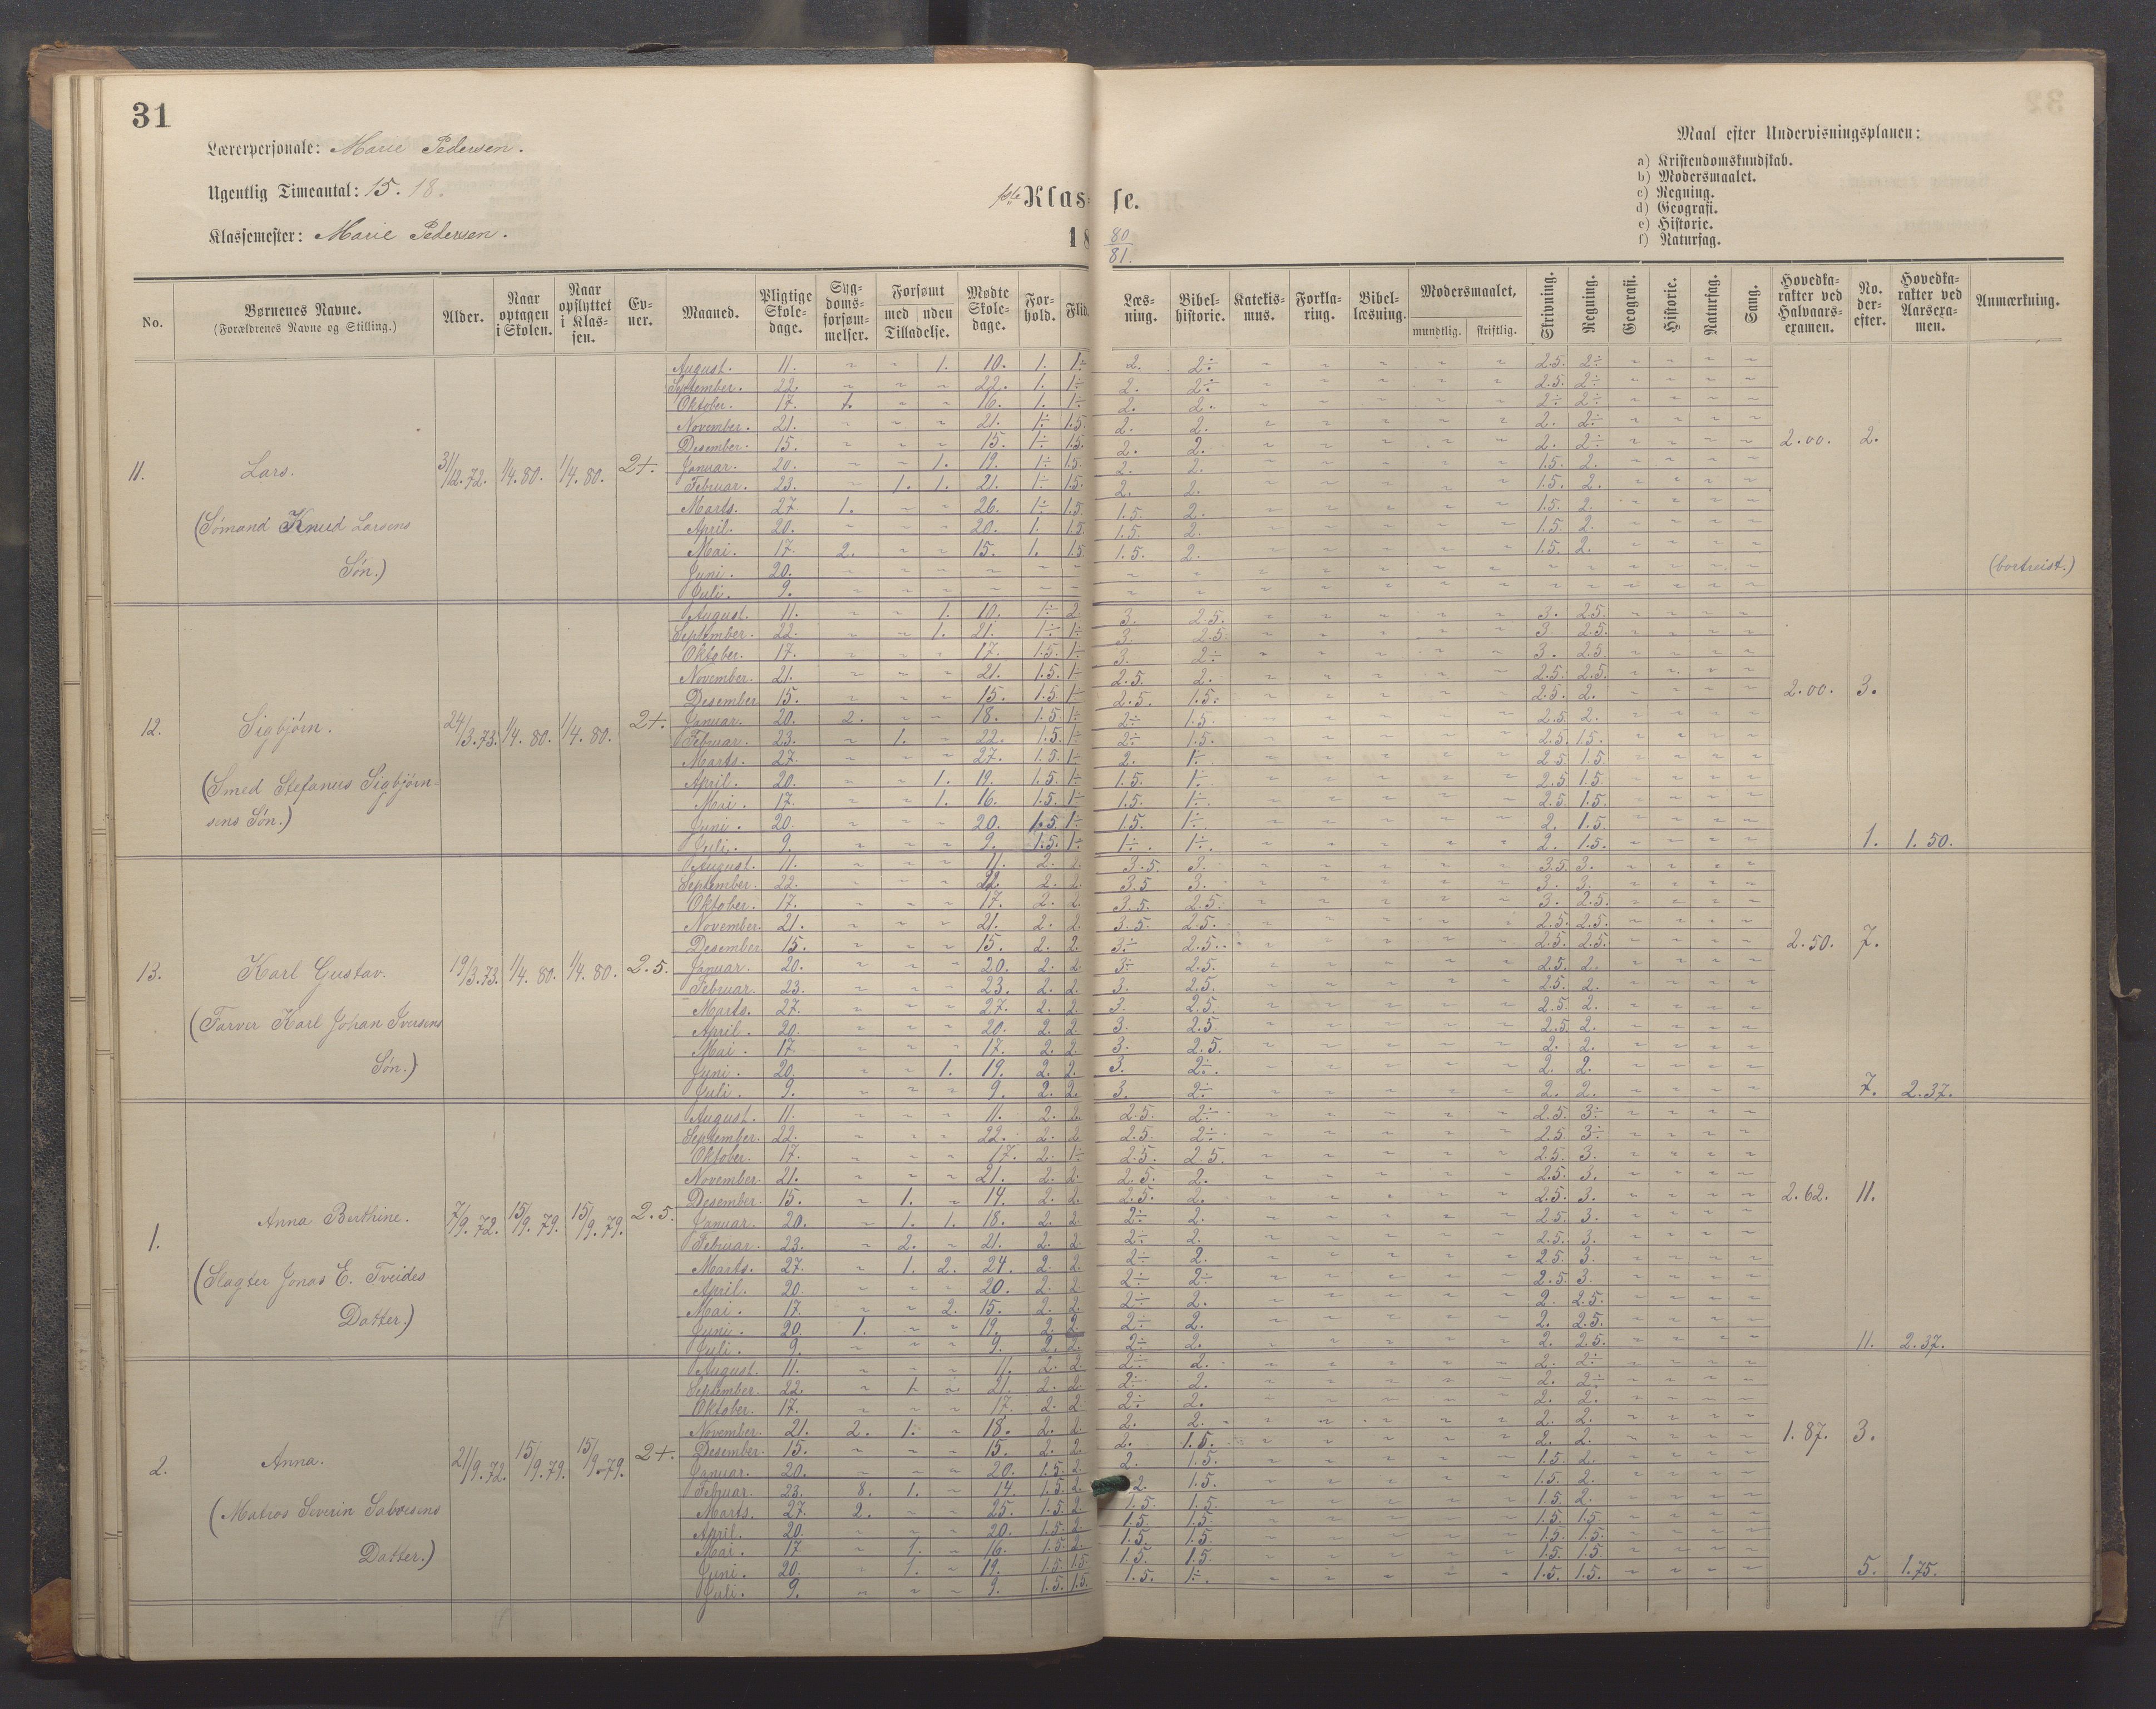 31
Lærerpersonale: Marie Pedersen.
Ugentlig Timeantal: 15. 18.
Klassemester: Marie Pedersen.
1ste Klasse.
18 80/81.
Maal efter Undervisningsplanen:
a) Kristendomskundskab.
b) Modersmaalet.
c) Regning.
d) Geografi.
e) Historie.
f) Naturfag.
No. Børnenes Navne. (Forældrenes Navne og Stilling.) Alder. Naar optagen i Skolen. Naar opflyttet i Klassen. Evner. Maaned. Pligtige Skoledage. Sygdomsforsømmelser. Forsømt med uden Tilladelse. Mødte Skoledage. Forhold. Flid. Læsning. Bibelhistorie. Katekismus. Forklaring. Bibellæsning. Modersmaalet, mundtlig. skriftlig. Skrivning. Regning. Geografi. Historie. Naturfag. Sang. Hovedkarakter ved Halvaarsexamen. No. derefter. Hovedkarakter ved Aarsexamen. Anmærkning.
August. 11. 1. 10. 1. 1÷ 2. 2÷ 2.5. 2÷
September. 22. 22. 1. 1÷ 2. 2÷ 2.5. 2÷
Oktober. 17. 1. 16. 1. 1÷ 2. 2. 2÷ 2÷
November. 21. 21. 1÷ 1.5. 2. 2. 2. 2÷
Desember. 15. 15. 1÷ 1.5. 2. 2. 2. 2÷ 2.00. 2.
11. Lars. 31/12.72. 1/4.80. 1/4.80. 2+. Januar. 20. 1. 19. 1÷ 1.5. 2. 2. 1.5. 2.
Februar. 23. 1. 1. 21. 1÷ 1.5. 2. 2. 1.5. 2.
(Sømand Knud Larsens Marts. 27 1. 26. 1÷ 1.5. 1.5. 2. 1.5. 2.
April. 20. 20. 1. 1.5. 1.5. 2. 1.5. 2.
Søn.) Mai. 17. 2. 15. 1. 1.5 1.5. 2. 1.5. 2.
Juni. 20. (bortreist.)
Juli. 9.
August. 11. 1. 10. 1÷ 2. 3. 2.5. 3. 2.5.
September. 22. 1. 21. 1÷ 1÷ 3. 2.5. 3. 2.5.
Oktober. 17. 17. 1.5. 1÷ 3. 2÷ 3. 2.5.
November. 21. 21. 1.5. 1÷ 2.5. 2. 2.5. 2.5.
Desember 15. 15. 1.5. 1÷ 2.5. 1.5. 2.5. 2. 2.00. 3.
12. Sigbjørn. 24/3.73. 1/4.80. 1/4.80. 2+. Januar. 20. 2. 18. 1.5. 1÷ 2÷ 1.5. 2.5. 2.
Februar. 23. 1. 22. 1.5. 1÷ 2÷ 1.5. 2.5. 1.5.
Marts. 27. 27. 1.5. 1÷ 2. 1÷ 2.5 1.5
(Smed Stefanus Sigbjørn- April. 20. 1. 19. 1.5. 1÷ 1.5. 1÷ 2.5 1.5
Mai. 17. 1. 16. 1.5. 1÷ 1.5. 1÷ 2.5. 1.5.
sens Søn.) Juni. 20. 20. 1.5 1÷ 1.5. 1÷ 2. 1.5.
Juli. 9. 9. 1.5. 1÷ 1÷ 1÷ 2. 1.5. 1. 1.50.
August. 11. 11. 2. 2. 3.5. 3. 3.5. 3.
September. 22. 22. 2. 2. 3.5 3. 3. 3.
Oktober. 17. 17. 2. 2. 3.5. 2.5. 3. 2.5.
November. 21. 21. 2. 2. 3.5. 2.5. 2.5. 2.5.
Desember 15. 15. 2. 2. 3÷ 2.5. 2.5. 2.5. 2.50. 7.
13. Karl Gustav. 19/3.73. 1/4.80. 1/4.80. 2.5. Januar. 20. 20. 2. 2. 3÷ 2.5. 2.5. 2.
Februar. 23. 23. 2. 2. 3. 2.5. 2.5. 2.
Marts. 27. 27. 2. 2 3. 2.5. 2.5. 2.
(Farver Karl Johan Iversens April. 20. 20. 2. 2. 3. 2.5 2.5. 2.
Mai. 17. 17. 2. 2 3. 2.5. 2. 2.
Søn.) Juni. 20. 1. 19. 2. 2. 3. 2÷ 2. 2.
Juli. 9. 9. 2. 2. 3. 2÷ 2. 2. 7. 2.37.
August. 11. 11. 2. 2. 2.5. 2÷ 2.5. 3÷
September. 22. 22. 2. 2. 2.5. 2÷ 2.5. 3÷
Oktober. 17. 17. 2. 1÷ 2.5. 2.5. 2.5. 3.
November. 21. 21. 2. 2. 2.5. 2. 2.5. 3.
Desember. 15. 1. 14. 2. 2. 2.5. 2. 2.5. 3. 2.62. 11.
1. Anna Berthine. 7/9.72. 15/9.79. 15/9.79. 2.5. Januar. 20. 1. 1. 18. 2. 2 2÷ 2. 2.5. 3.
Februar. 23. 2. 21. 2. 2. 2÷ 2. 2.5. 3.
(Slagter Jonas E. Tveides Marts. 27. 1. 2. 24. 2. 2. 2÷ 2. 2.5. 3.
April. 20. 20. 2. 2 2÷ 2÷ 2.5. 3.
Datter.) Mai. 17. 2. 15. 2. 2. 2÷ 2. 2. 2.5.
Juni. 20. 1. 19. 2. 2. 2÷ 2. 2. 2.5.
Juli. 9. 9. 2. 2. 2÷ 2. 2. 2.5. 11. 2.37.
August. 11. 11. 2. 2. 2÷ 2. 2. 2÷
September. 22. 1. 21. 2. 2. 2÷ 2. 2. 2÷
Oktober. 17. 17. 2. 2. 2÷ 2. 2. 2.
November. 21. 2. 1. 18. 2. 2. 2. 2. 2. 2.
Desember. 15. 15. 2. 2. 2. 1.5. 2. 2. 1.87. 3.
2. Anna. 21/9.72. 15/9.79. 15/9.79. 2+. Januar. 20. 20. 1.5. 2. 2. 1.5. 1.5. 2.
Februar. 23. 8. 1. 14. 1.5. 2. 2. 1.5. 1.5. 2.
(Matros Severin Marts. 27. 2. 25. 1.5. 2. 1.5. 1.5. 1.5. 2.
April. 20. 20. 1.5. 2. 1.5. 1.5. 1.5. 1.5.
Datter.) Mai. 17 1. 16. 1.5. 2. 1.5. 1.5. 1.5. 1.5.
Juni. 20. 1. 19. 1.5. 1.5 1.5. 1.5. 1.5. 1.5.
Juli. 9. 9. 1.5. 1.5. 1.5. 1÷ 1.5. 1.5. 5. 1.75.